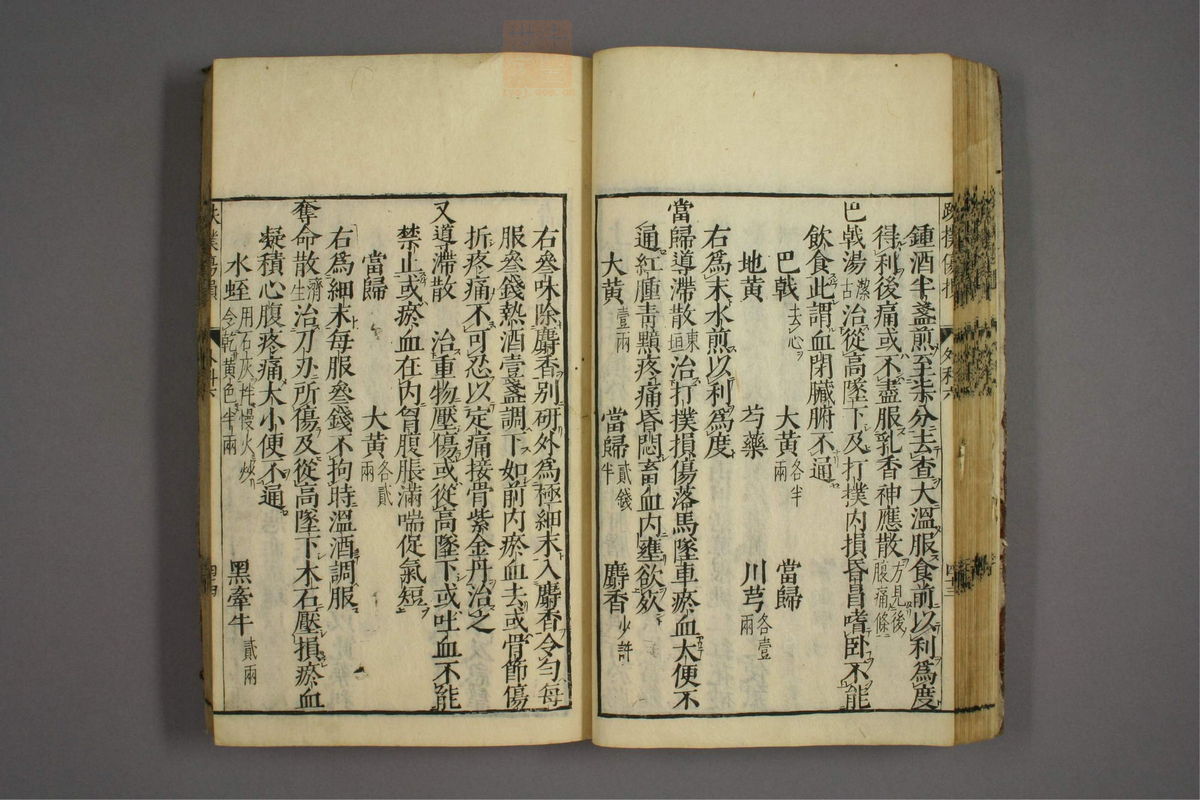 鍾酒半盞煎至柒分去査大溫服食前以利爲度
得利後痛或不盡服乳香神應散方見後腹痛條
巴戟湯潔古治從高墜下及打撲内損昏冒嗜卧不能
飲食此謂血閉臟腑不通
巴戟去心 大黃各半兩 當歸
地黃 芍藥 川芎各壹兩
右爲末水煎以利爲度
當歸導滯散東垣治打撲損傷落馬墜車瘀血大便不
通紅腫青黯疼痛昏悶畜血内壅欲𣣔
大黃壹兩 當歸貳錢半 麝香少許
右叄味除麝香別研外爲極細末入麝香令匀每
服叄錢熱酒壹盞調下如前内瘀血去或骨節傷
折疼痛不可忍以定痛接骨紫金丹治之
又導滯散 治重物壓傷或從高墜下或吐血不能
禁止或瘀血在内胷腹脹滿喘促氣短
當歸 大黃各貳兩
右爲細末每服叄錢不拘時溫酒調服
奪命散濟生治刀刃所傷及從高墜下木石壓損瘀血
凝積心腹疼痛大小便不通
水蛭用石灰拌慢火炒令乾黃色半兩 黑牽牛貳兩